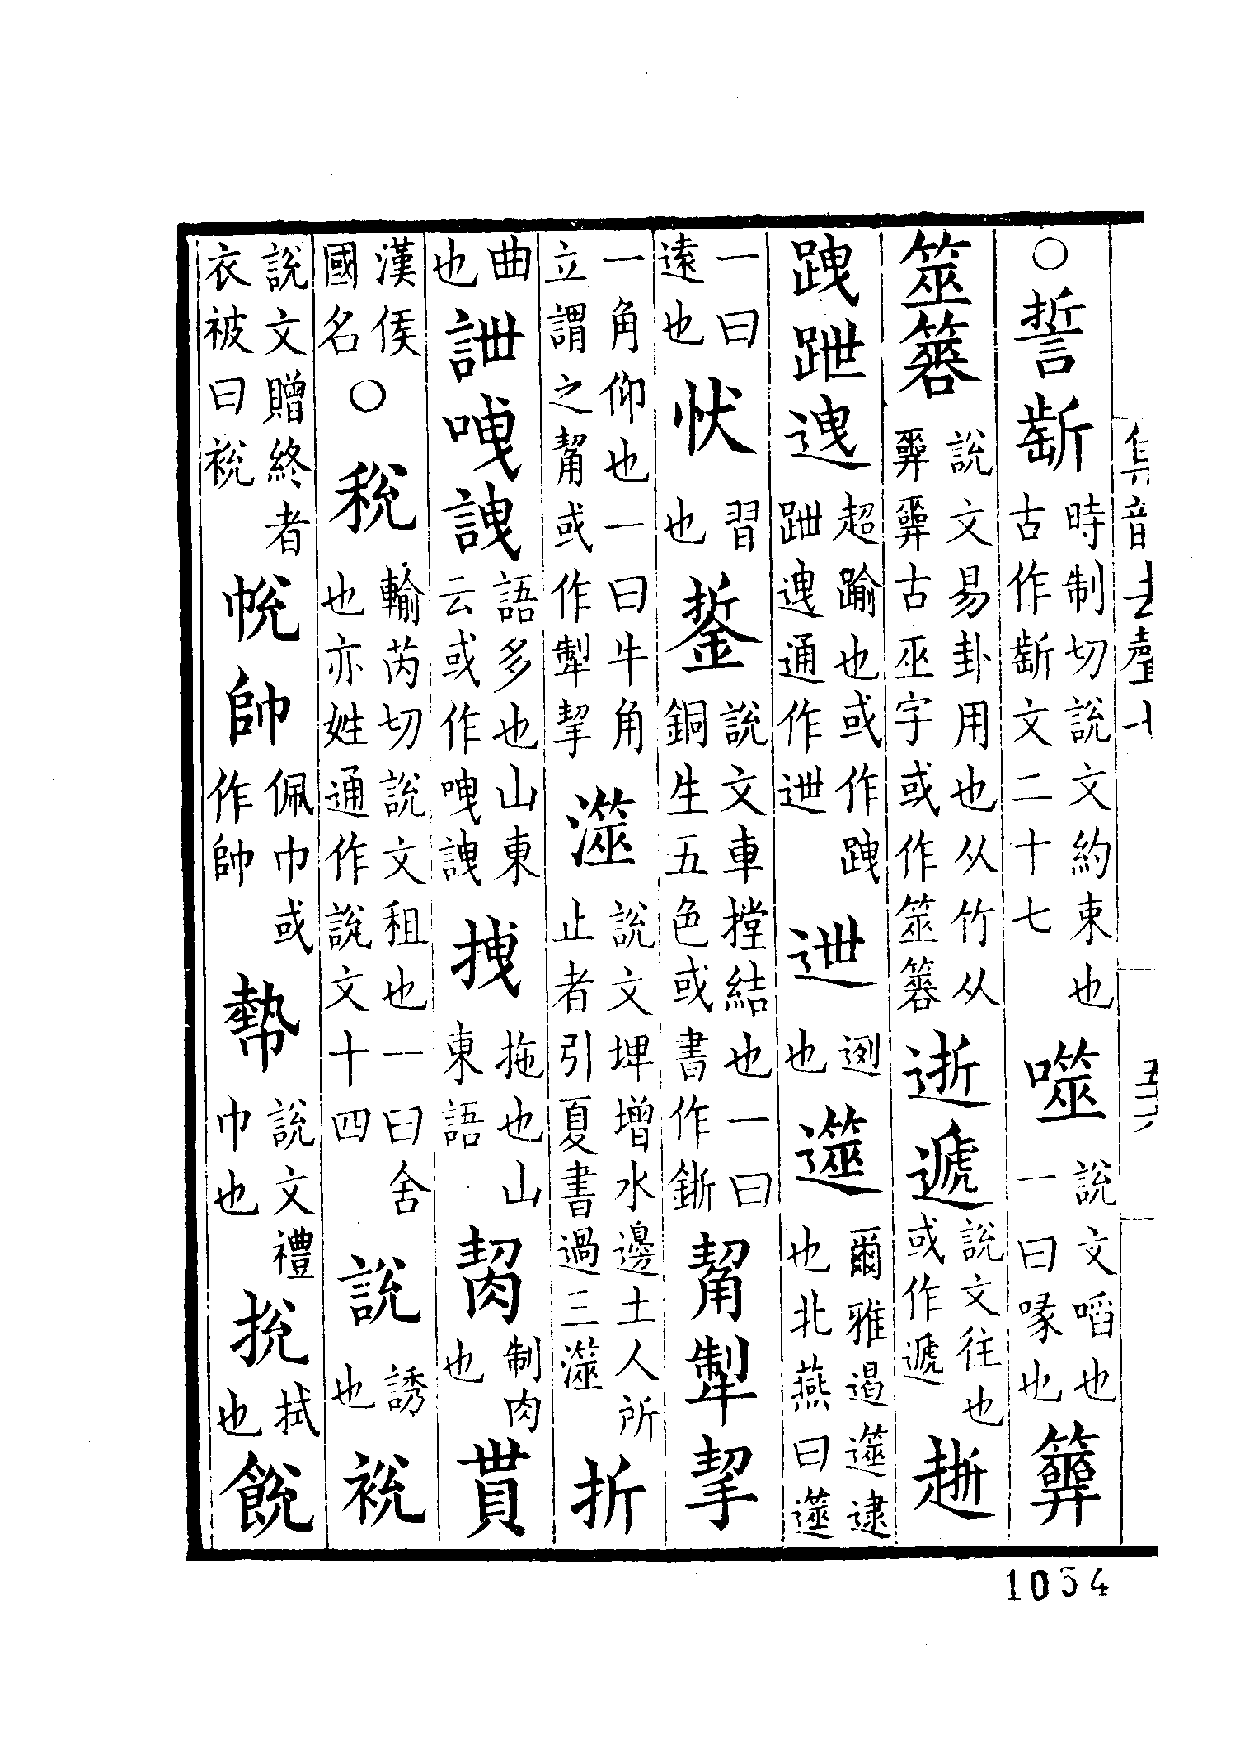 ○誓斮時制切說文約束也古作斮文二十七噬說文㗖也一曰喙也簭
筮簭說文易卦用也从竹从巫巫古巫字或作筮簭逝遞說文往也或作遞䟷
跩跇迣超踰也或作跩跇迣通作迣迣迾也遾爾雅遏遾逮也北燕曰遾
一曰遠也忕習也銴說文車摚結也一曰銅生五色或書作䤱觢犎挈
一角仰也一曰牛角立謂之觢或作犎挈澨說文埤增水邊土人所止者引夏書過三澨折
曲也詍呭詍語多也山東云或作呭詍拽拖也山東語㓞制肉也貰
漢侯國名○稅輸芮切說文租也一曰舍也亦姓通作說文十四說誘也祱
說文贈終者衣被曰祱帨帥佩巾或作帥㡜說文禮巾也挩拭也䬽
集韻去聲七
五六
1054